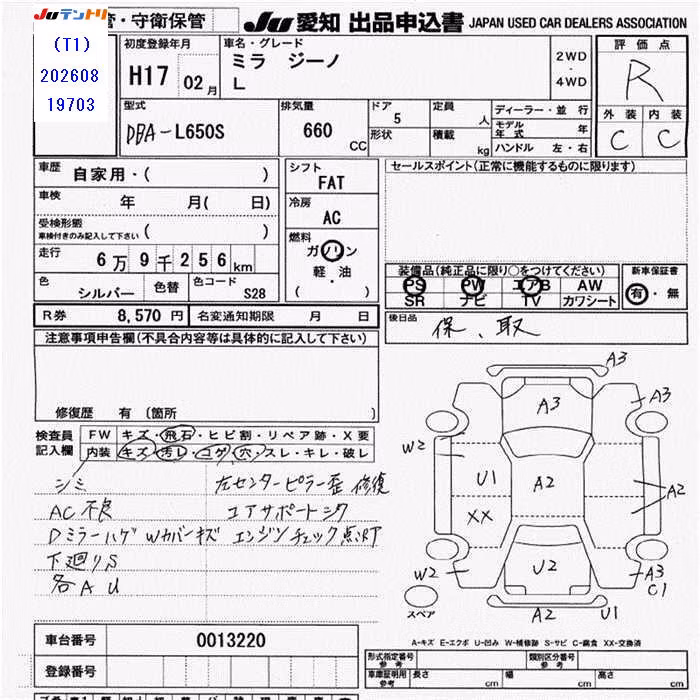 JUテントリ 管・守衛保管 JU 愛知 出品申込書 JAPAN USED CAR DEALERS ASSOCIATION
(T1)
202608
19703
初度登録年月 車名・グレード 評価点
H17 02月 ミラ ジーノ 2WD・4WD R
L
外装 内装
C C
型式 排気量 ドア 定員 ディーラー・並行
DBA-L650S 660 CC 5 人 モデル年式 年
形状 積載 kg ハンドル 左・右
車歴 自家用・( ) シフト セールスポイント(正常に機能するものに限ります)
FAT
車検 年 月( 日) 冷房
AC
受検形態
車検付きのみ記入して下さい ( ) 燃料
走行 6万9千256km ガソリン
軽・油
( )
装備品(純正品に限り○をつけてください) 新車保証書
PS PW エアB AW 有・無
SR ナビ TV カワシート
色 シルバー 色替 色コード S28
R券 8,570円 名変通知期限 月 日 後日品 保、取
注意事項申告欄(不具合内容等は具体的に記入して下さい)
修復歴 有 (箇所 )
検査員記入欄 FW キズ・飛石・ヒビ割・リペア跡・X要
内装 キズ・汚レ・コゲ・穴・スレ・キレ・破レ
シミ 左センターピラー歪 修復
AC不良 エアサポートシワ
Dミラーハゲ Wカバーキズ エンジンチェック点灯
下廻りS
各AU
A3
A3
A3
W2
U1 A2 A2
XX
W2 U2 A3
C1
スペア A2 U1
A-キズ E-エクボ U-凹み W-補修跡 S-サビ C-腐食 XX-交換済
車台番号 0013220
登録番号
形式指定番号 参考 類別区分番号 参考
車庫証明用 参考 長さ cm 幅 cm 高さ cm